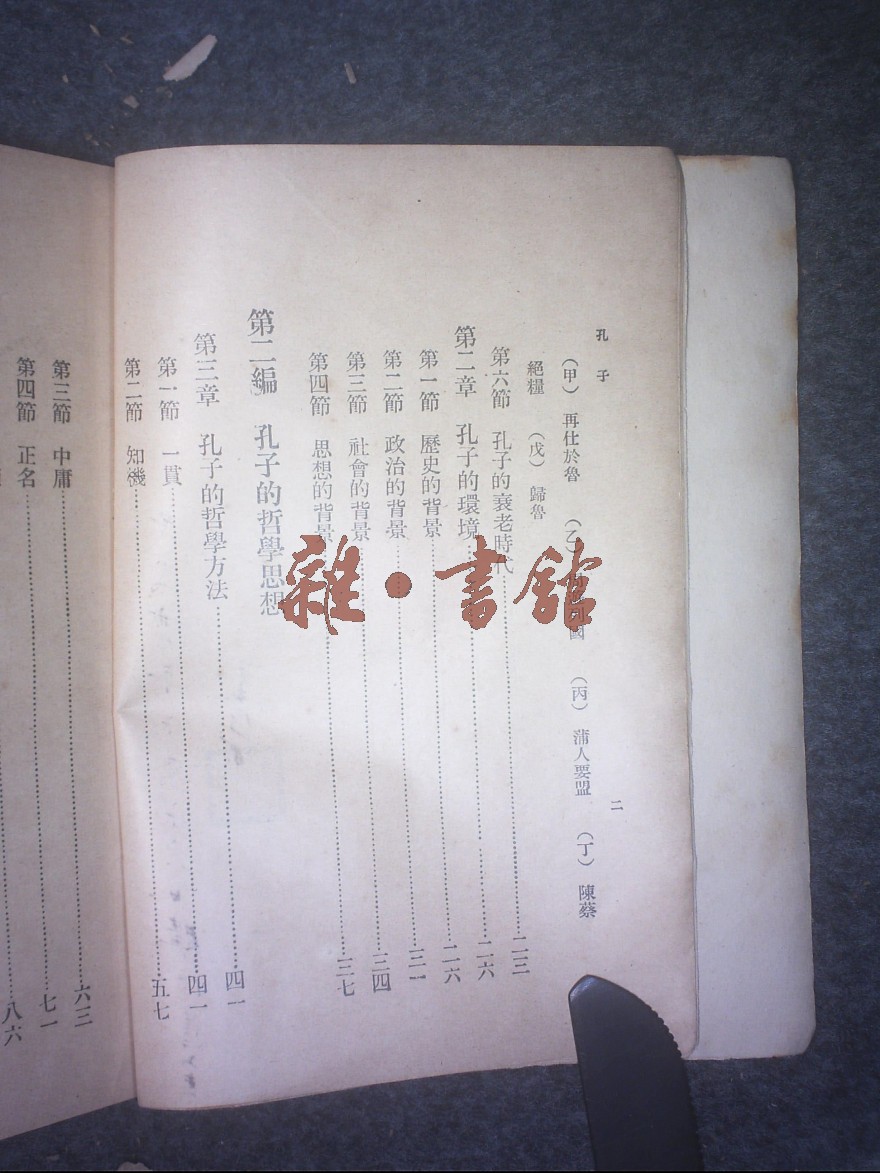 孔子
二
(甲) 再仕於魯 (乙) 列國 (丙) 蒲人要盟 (丁) 陳蔡
絕糧 (戊) 歸魯
第六節 孔子的衰老時代 二三
第二章 孔子的環境 二六
第一節 歷史的背景 二六
第二節 政治的背景 三一
第三節 社會的背景 三四
第四節 思想的背景 三七
第二編 孔子的哲學思想
第三章 孔子的哲學方法 四一
第一節 一貫 四一
第二節 知機 五七
第三節 中庸 六三
第四節 正名 七一
八六
雜·書館